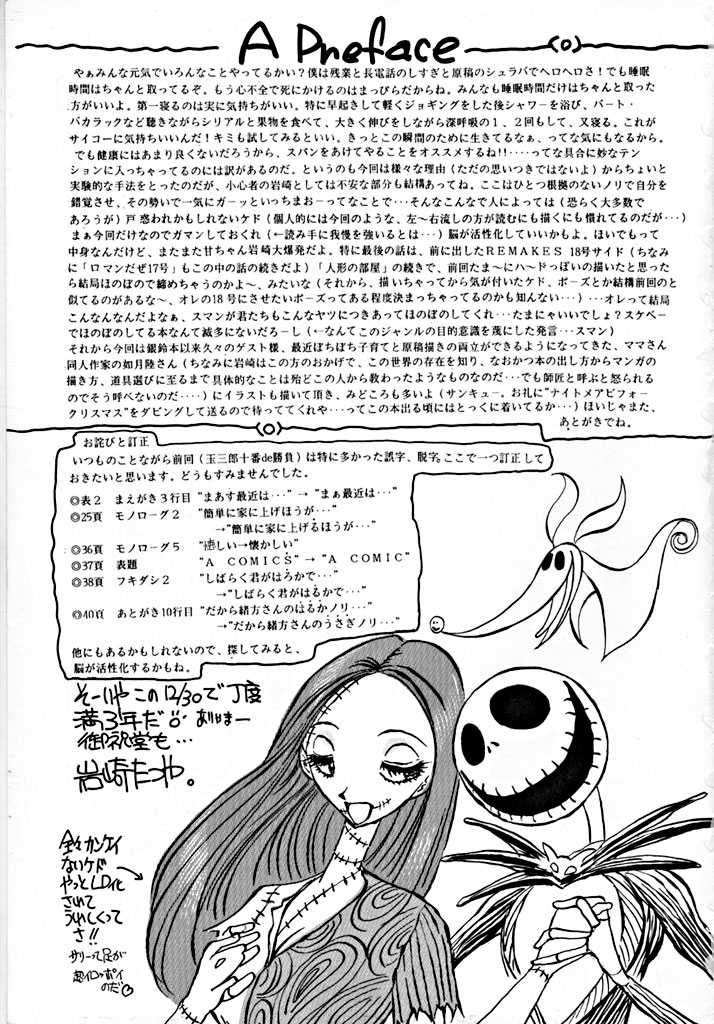 A Preface
やぁみんな元気でいろんなことやってるかい？僕は残業と長電話のしすぎと原稿のシュラバでヘロヘロさ！でも睡眠
時間はちゃんと取ってるぞ。もう心不全で死にかけるのはまっぴらだからね。みんなも睡眠時間だけはちゃんと取った
方がいいよ。第一寝るのは実に気持ちがいい。特に早起きして軽くジョギングをした後シャワーを浴び、バート・
バカラックなど聴きながらシリアルと果物を食べて、大きく伸びをしながら深呼吸の１、２回もして、又寝る。これが
サイコーに気持ちいいんだ！キミも試してみるといい。きっとこの瞬間のために生きてるなぁ、ってな気にもなるから。
でも健康にはあまり良くないだろうから、スパンをあけてやることをオススメするね!!‥‥ってな具合に妙なテン
ションに入っちゃってるのには訳があるのだ。というのも今回は様々な理由（ただの思いつきではないよ）からちょいと
実験的な手法をとったのだが、小心者の岩崎としては不安な部分も結構あってね。ここはひとつ根拠のないノリで自分を
錯覚させ、その勢いで一気にガーッといっちまおーってなことで…そんなこんなで人によっては（恐らく大多数で
あろうが）戸惑われかもしれないケド（個人的には今回のような、左〜右流しの方が読むにも描くにも慣れてるのだが…）
まぁ今回だけなのでガマンしておくれ（←読み手に我慢を強いるとは…）脳が活性化していいかもよ。ほいでもって
中身なんだけど、またまた甘ちゃん岩崎大爆発だよ。特に最後の話は、前に出したＲＥＭＡＫＥＳ 18号サイド（ちなみ
に「ロマンだぜ17号」もこの中の話の続きだよ）「人形の部屋」の続きで、前回たま〜にハ〜ドっぽいの描いたと思った
ら結局ほのぼので締めちゃうのかよ〜、みたいな（それから、描いちゃってから気が付いたケド、ポーズとか結構前回のと
似てるのがあるな〜、オレの18号にさせたいポーズってある程度決まっちゃってるのかも知んない…）…オレって結局
こんなんなんだよなぁ、スマンが君たちもこんなヤツにつきあってほのぼのしてくれ…たまにゃいいでしょ？スケベー
でほのぼのしてる本なんて滅多にないだろーし（←なんてこのジャンルの目的意識を蔑にした発言…スマン）
それから今回は銀鈴本以来久々のゲスト様、最近ぼちぼち子育てと原稿描きの両立ができるようになってきた、ママさん
同人作家の如月陸さん（ちなみに岩崎はこの方のおかげで、この世界の存在を知り、なおかつ本の出し方からマンガの
描き方、道具選びに至るまで具体的なことは殆どこの人から教わったようなものなのだ…でも師匠と呼ぶと怒られる
のでそう呼べないのだ‥‥）にイラストも描いて頂き、みどころも多いよ（サンキュー。お礼に“ナイトメアビフォー
クリスマス”をダビングして送るので待っててくれや…ってこの本出る頃にはとっくに着いてるか…）ほいじゃまた、
あとがきでね。
お詫びと訂正
いつものことながら前回（玉三郎十番de勝負）は特に多かった誤字、脱字。ここで一つ訂正して
おきたいと思います。どうもすみませんでした。
◎表２ まえがき３行目 “まあす最近は…”→“まぁ最近は…”
◎25頁 モノローグ２ “簡単に家に上げほうが…”
→“簡単に家に上げるほうが…”
◎36頁 モノローグ５ “しい→懐かしい”
◎37頁 表題 “Ａ ＣＯＭＩＣＳ”→“Ａ ＣＯＭＩＣ”
◎38頁 フキダシ２ “しばらく君がはろかで…”
→“しばらく君がはるかで…”
◎40頁 あとがき10行目 “だから緒方さんのはるかノリ…”
→“だから緒方さんのうさぎノリ…”
他にもあるかもしれないので、探してみると、
脳が活性化するかもね。
そーいやこの12/30で丁度
満3年だ ありまー
御祝堂も…
岩崎たつや。
全々カンケイ
ないケド
やっとLD化
されて
うれしくって
さ!!
サリーって足が
超イロッポイ
のだ♡